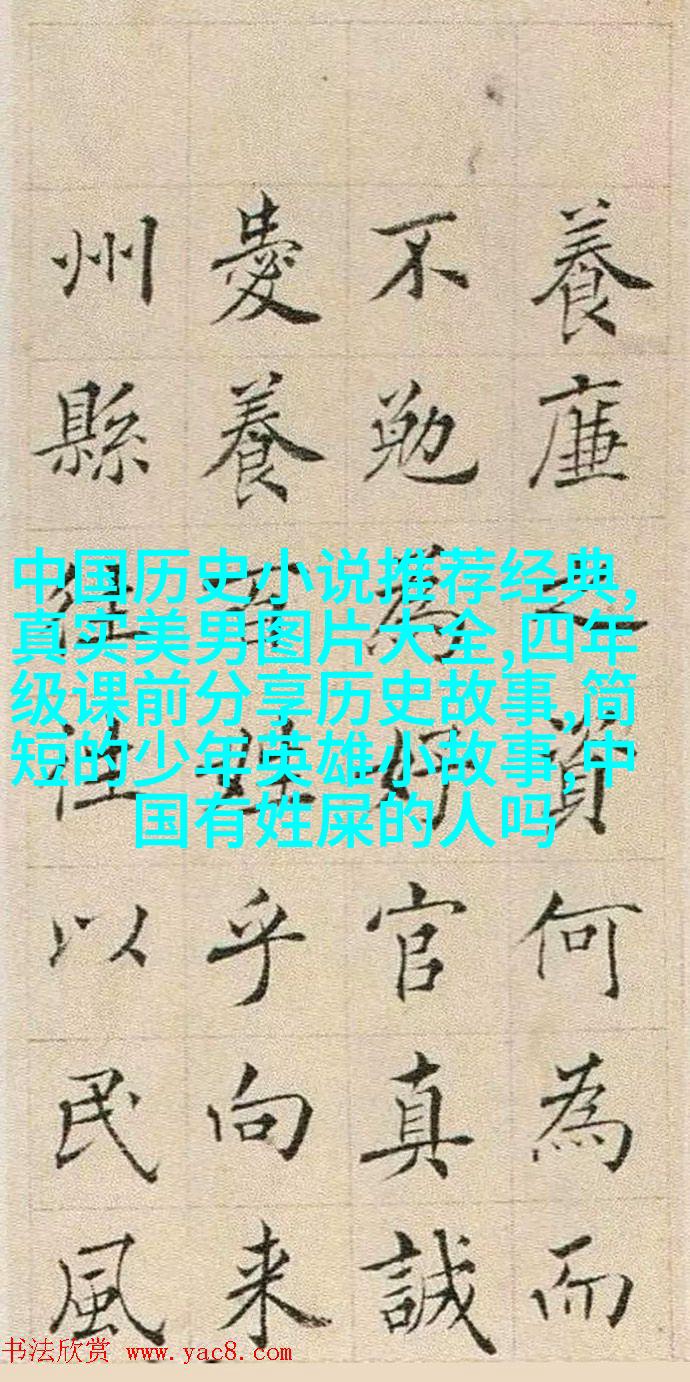 中国历史小说推荐经典,
真实美男图片大全,四年
级课前分享历史故事,简
短的少年英雄小故事,中
国有姓屎的人吗
養廉之資何為而
不勉為好官真誠
愛養百姓乎向来
州縣往往以民風
书法欣赏 www.yac8.com